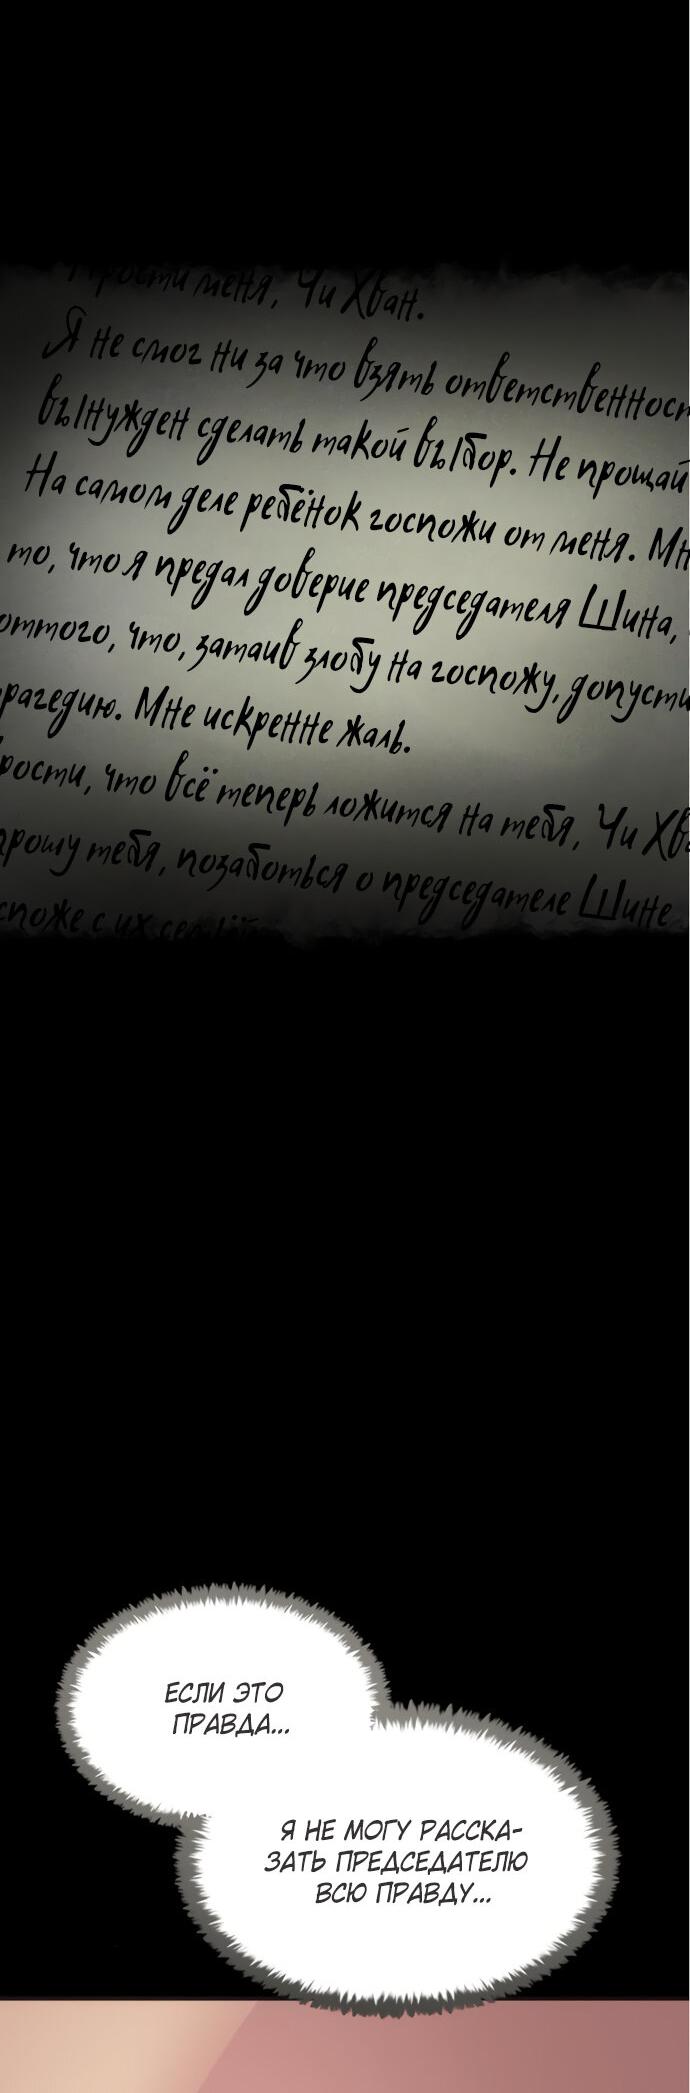 Прости меня, Чи Хван.
Я не смог ни за что взять ответственност
вынужден сделать такой выбор. Не прощай
На самом деле ребёнок госпожи от меня. Мн
то, что я предал доверие председателя Шина,
оттого, что, затаив злобу на госпожу, допусти
рагедию. Мне искренне жаль.
рости, что всё теперь ложится на тебя, Чи Хва
прошу тебя, позаботься о председателе Шине
споже с их
ЕСЛИ ЭТО
ПРАВДА...
Я НЕ МОГУ РАССКА-
ЗАТЬ ПРЕДСЕДАТЕЛЮ
ВСЮ ПРАВДУ...